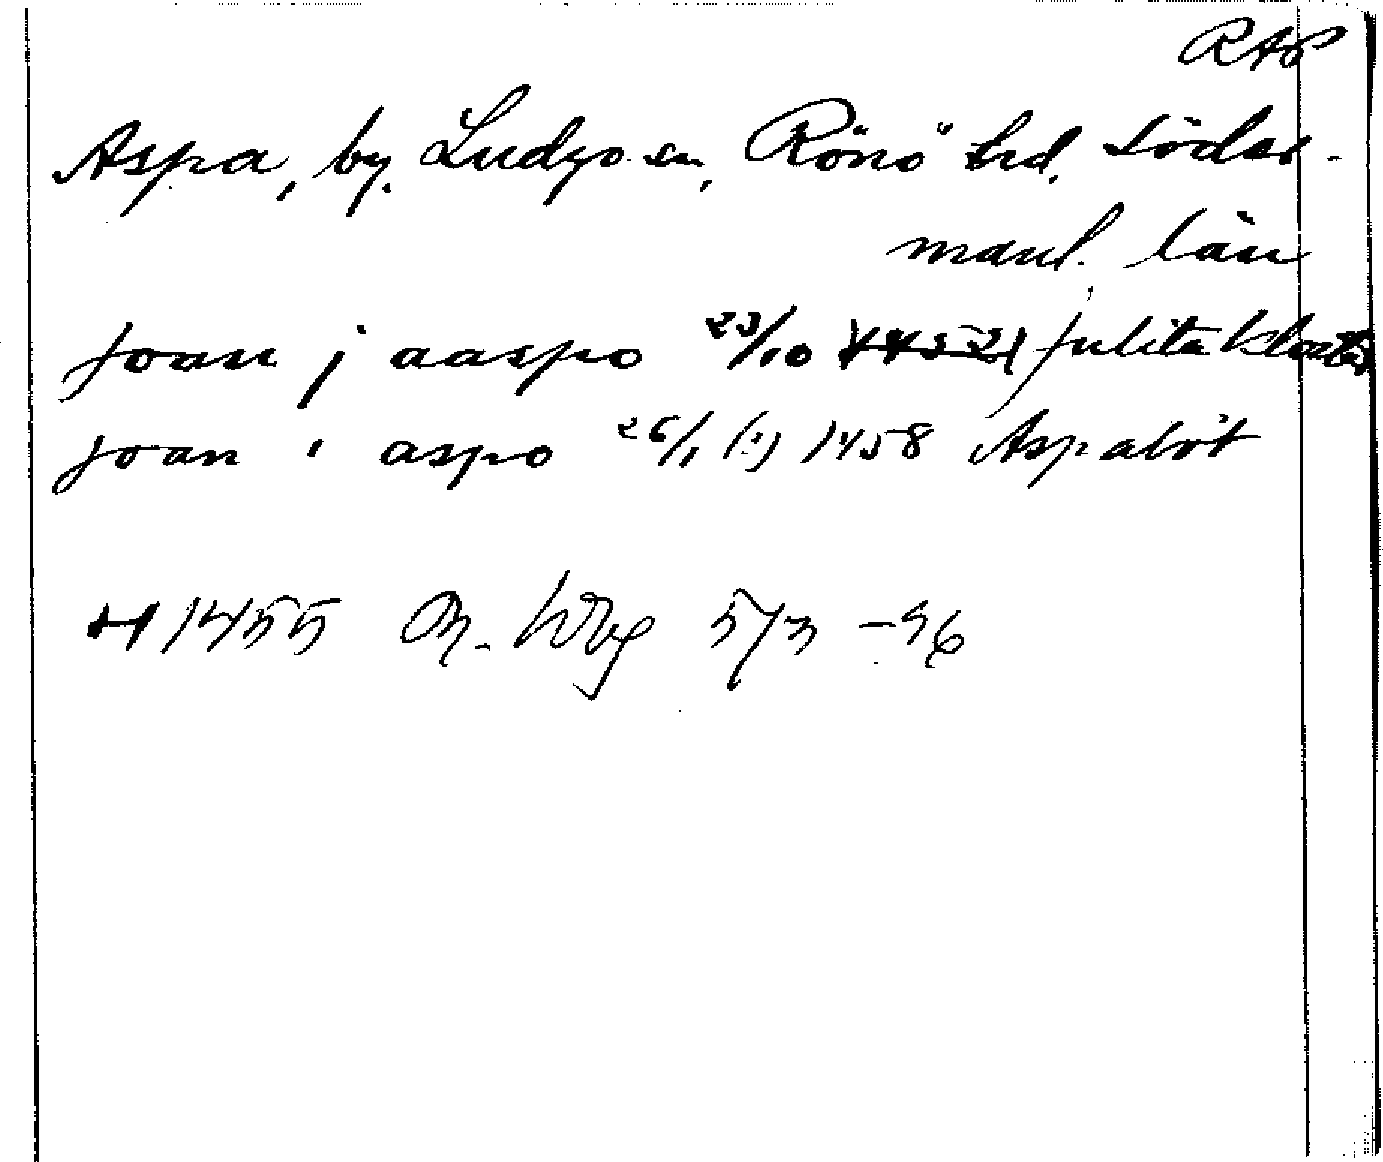 RAP
Aspa, by. Ludgo sn, Rönö hd, Söder-
manl. län
joan j aaspo 23/10 Julita kloster
joan i aspo 26/1 (?) 1458 Aspalöt
1455 5/3 -46